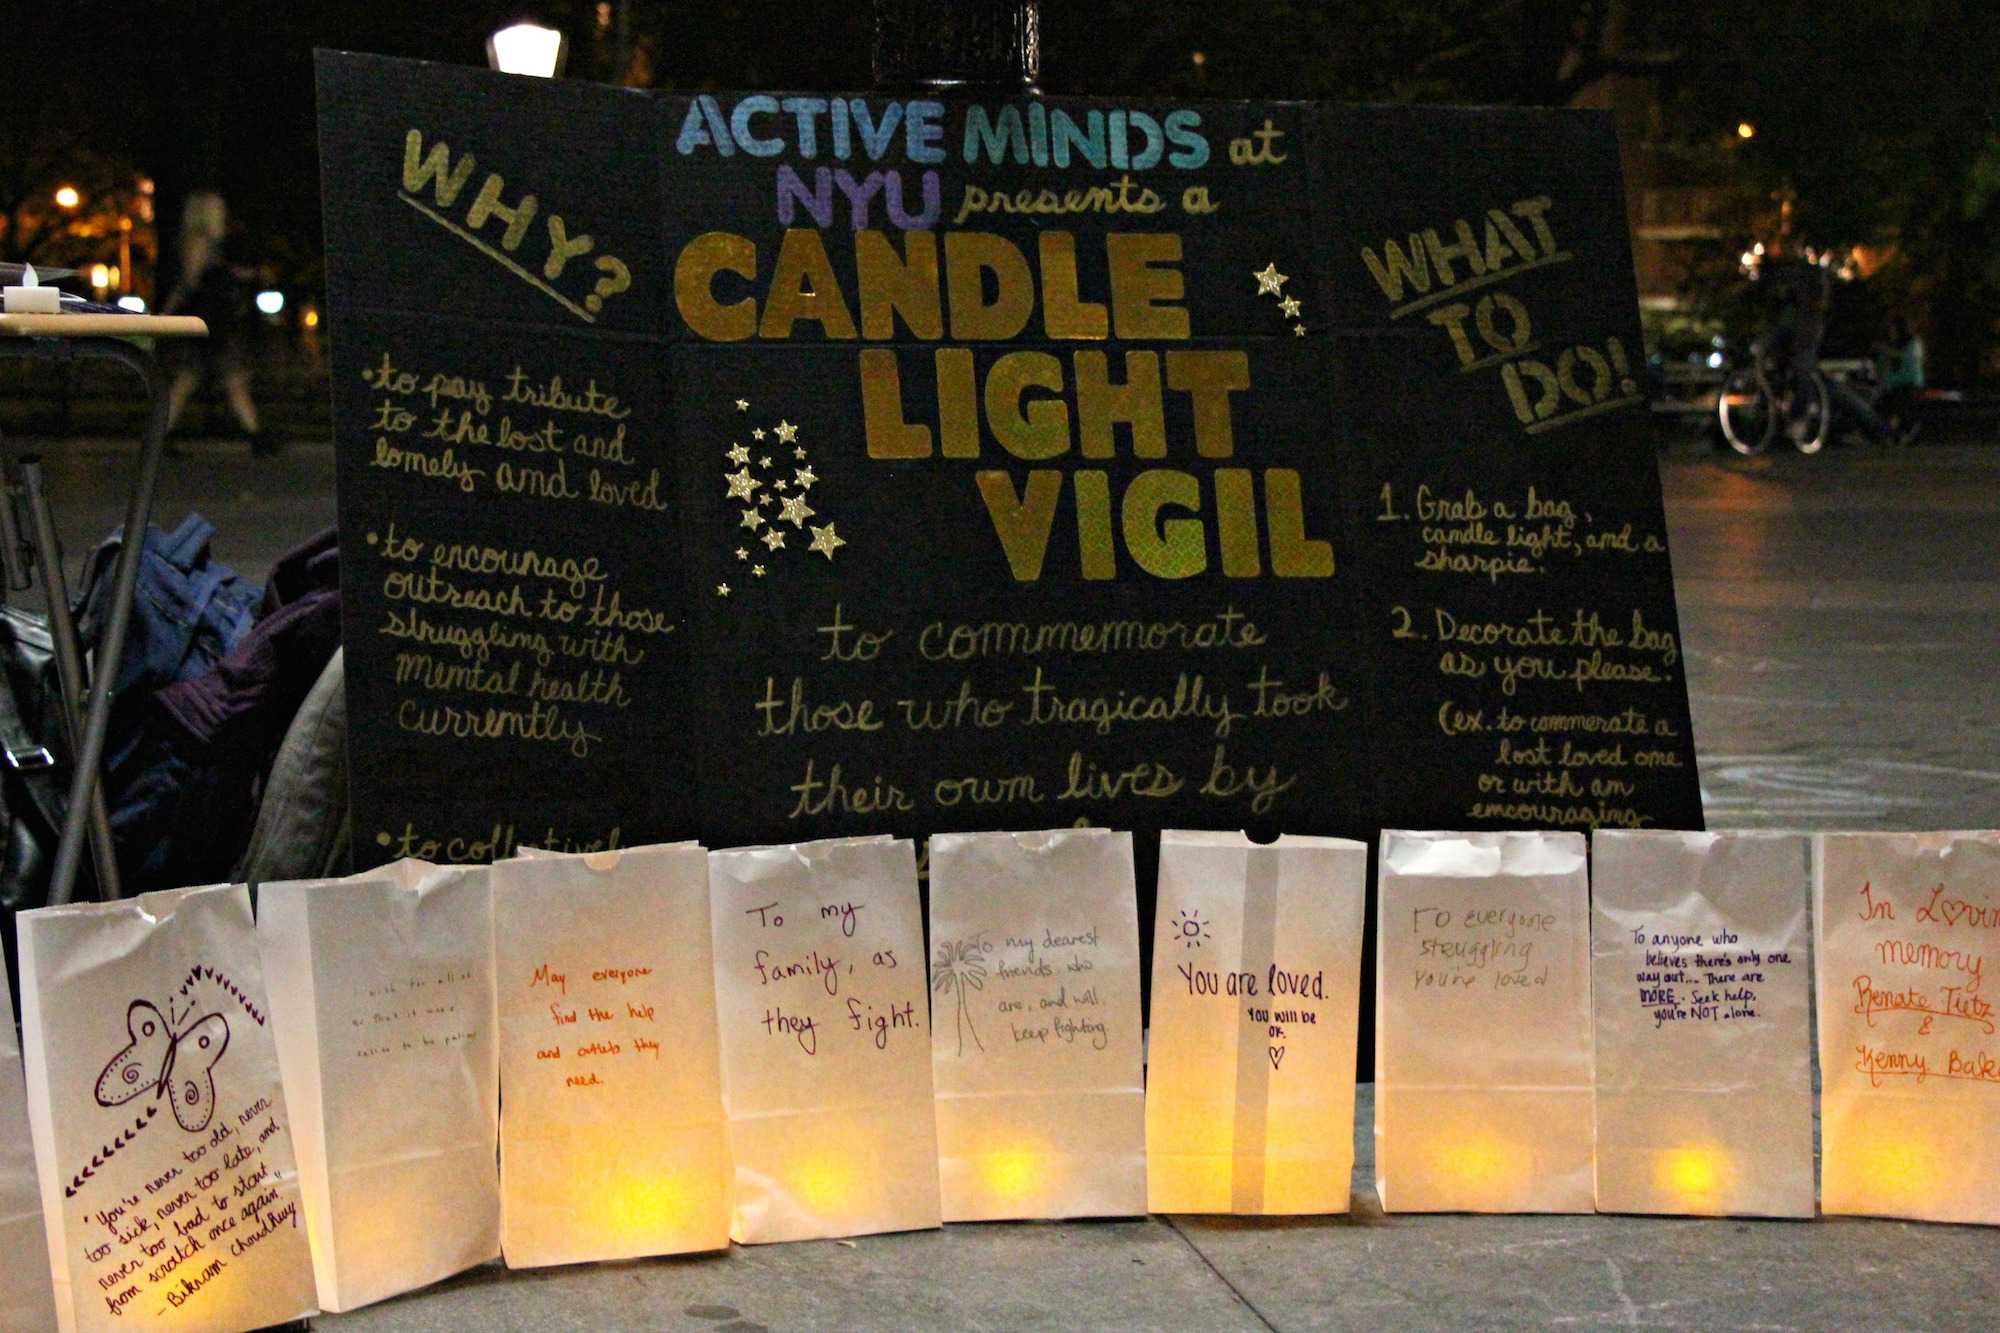 ACTIVE MINDS at
NYU presents a
CANDLE
LIGHT
VIGIL
to commemorate
those who tragically took
their own lives by
WHY?
•to pay tribute
to the lost and
lonely and loved
•to encourage
outreach to those
struggling with
mental health
currently
•to collectively
WHAT
TO
DO!
1. Grab a bag,
candle light, and a
sharpie.
2. Decorate the bag
as you please.
(ex. to commerate a
lost loved one
or with an
encouraging
"You're never too old, never
too sick, never too late, and
never too bad to start
from scratch once again."
- Bikram Choudhury
I wish for all of
May everyone
find the help
and outlets they
need.
To my
family, as
they fight.
To my dearest
friends who
are, and will,
keep fighting
You are loved.
YOU WILL BE
OK.
To everyone
struggling
you're loved
To anyone who
believes there's only one
way out... There are
MORE. Seek help,
you're NOT alone.
In Lovin
memory
Renate Tietz
&
Kenny Bak